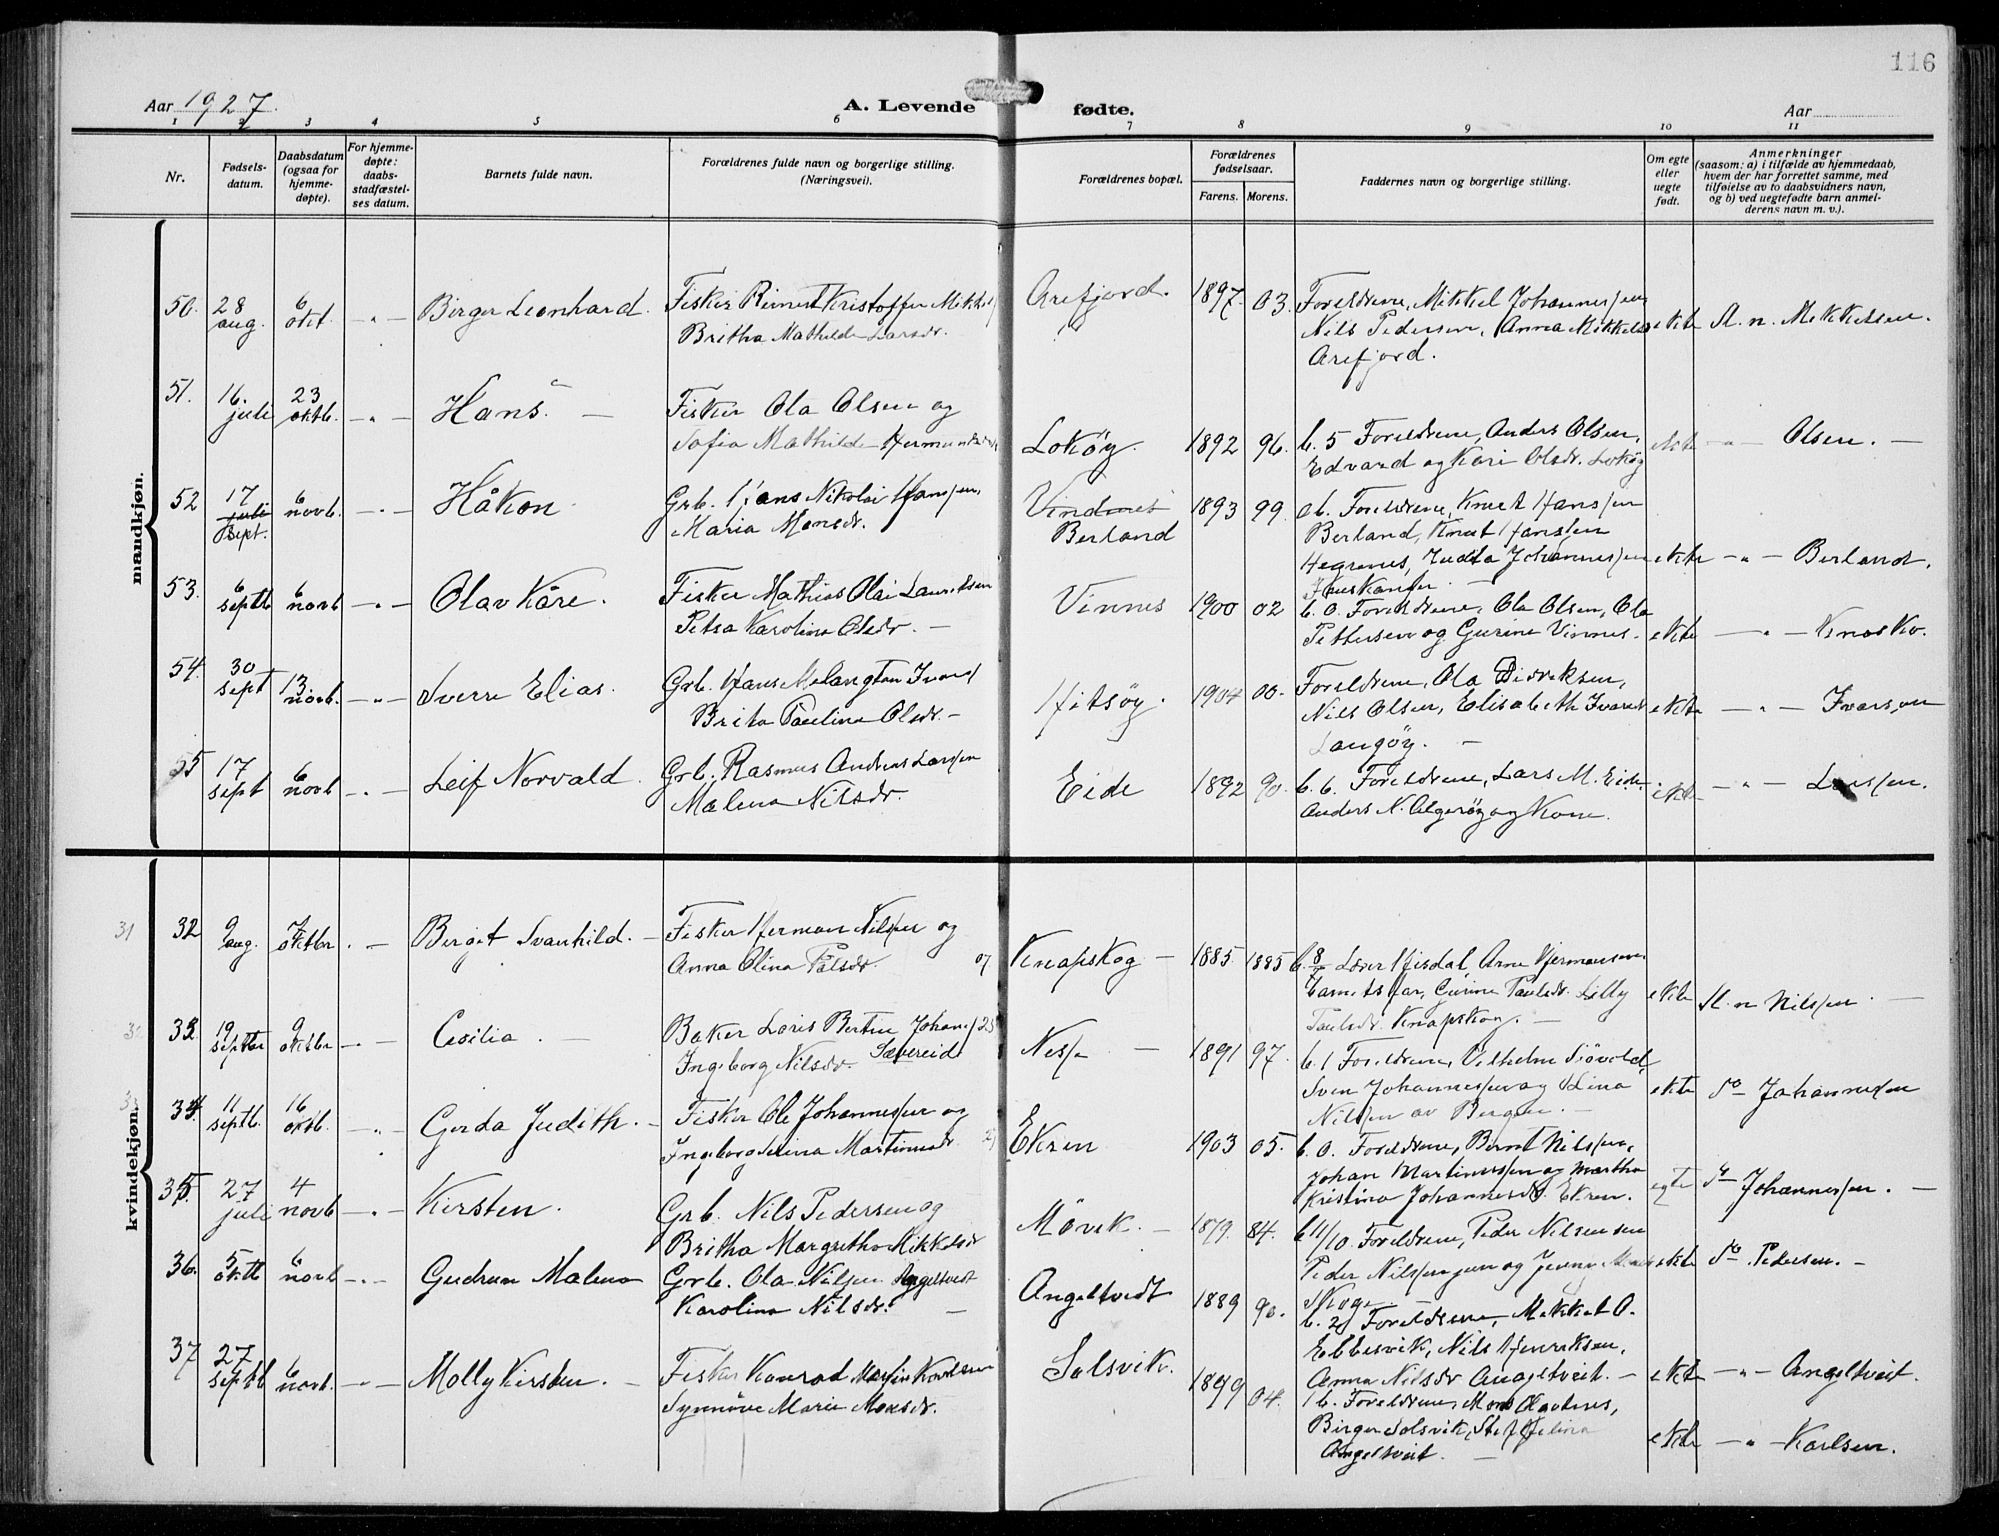 116
Aar 1927.
A. Levende fødte.
Aar
1 2 3 4 5 6 7 8 9 10 11
Nr.
Fødsels-
datum.
Daabsdatum
(ogsaa for
hjemme-
døpte).
For hjemme-
døpte:
daabs-
stadfæstel-
ses datum.
Barnets fulde navn.
Forældrenes fulde navn og borgerlige stilling.
(Næringsvei).
Forældrenes bopæl.
Forældrenes
fødselsaar.
Farens. Morens.
Faddernes navn og borgerlige stilling.
Om egte
eller
uegte
født.
Anmerkninger
(saasom: a) i tilfælde av hjemmedaab,
hvem der har forrettet samme, med
tilføielse av to daabsvidners navn,
og b) ved uegtefødte barn anmel-
derens navn m. v.).
mandkjøn.
50. 28 aug. 6 okt. - " - Birger Leonhard.
Fisker Rimert Kristoffer Mikkels
Britha Mathilde Larsdr.
Arefjord. 1897. 03.
Foreldrene, Mikkel Johannessen
Nils Pedersen, Anna Mikkelsd
Arefjord.
ekte Sl. n. Mikkelsen.
51. 16. juli 23 oktb. - " - Hans. -
Fisker Ola Olsen og
Sofia Mathilde Hermundsdr
Lokøy. 1892 96.
b. 5 Foreldrene, Anders Olsen,
Edvard og Kari Olsdr. Lokøy
ekte - " - Olsen. -
52 17 juli sept. 6 novb. - " - Håkon.
Grb. Hans Nikolai Hanssen,
Maria Monsdr.
Vindnes
Berland 1893 99.
b. Foreldrene, Knut Hanssen
Berland, Knut Hanssen
Hegrenes, Judta Johannessen
ekte - " - Berland.
53. 6 septb 6 novb - " - Olav Kåre.
Fisker Mathias Olai Lauritsen
Petra Karolina Olsdr. -
Vinnes 1900 02
b. 0. Foreldrene, Ola Olsen, Ola
Pettersen og Gurine Vinnes.
ekte - " -
54. 30 sept 13. novb. - " - Sverre Elias.
Grb. Hans Melangton Ivars
Brita Paulina Olsdr. -
Hitsøy. 1904 00.
Foreldrene, Ola Didriksen,
Nils Olsen, Elisabeth Ivarsd
Langøy. -
ekte - " - Ivarsen
55 17 sept 6 novb - " - Leif Norvald.
Grb. Rasmus Andreas Larssen
Malena Nilsdr.
Eide 1892 90.
b. 6. Foreldrene, Lars M. Eide,
Anders N. Algerøy og Kone.
ekte - " - Larssen.
kvindekjøn.
31 32 9 aug. 7 oktbr - Bergit Svanhild. -
Fisker Herman Nilssen og
Anna Olina Pålsdr. 07
Knapskog - 1885. 1885
b. 8 Lærer Hisdal, Arne Hermansen.
barnets far, Gurine Paulsdr. Lilly
Paulsdr. Knapskog. -
ekte Sl. n Nilssen. -
33. 19 septbr 9 oktbr - " - Cecilia. -
Baker Loris Bertin Johans
Ingeborg Nilsdr. Sævereid
Nesse - 1891 97.
b. 1 Foreldrene, Vilhelm Sjövold
Sven Johannessen og Stina
Nilssen av Bergen. -
ekte So Johannessen
34. 11 septb. 16 oktb. - " - Gerda Judith. -
Fisker Ole Johannessen og
Ingeborg Selina Martinusdr.
Ekren 1903 05.
b. 0. Foreldrene, Bernt Nilssen,
Johan Martinussen og Martha
Kristina Johannesdr. Ekren.
egte So Johannessen. -
35. 27 juli 4 novb - " - Kirsten.
Grb. Nils Pedersen og
Britha Margretha Mikkelsdr
Mövik. - 1879. 84.
b 11/10. Foreldrene, Peder Nilsen sen
Peder Nilssen jun og Jenny
Skoge.
ekte So Pedersen. -
36. 5 oktb 6 novb - " - Gudrun Malena
Grb. Ola Nilsen Angeltvedt
Karolina Nilsdr. -
Angeltvedt 1889 90.
b. 2 Foreldrene, Mikkel O.
Ebbesvik, Nils Henriksen,
Anna Nilsdr Angeltveit. -
ekte - " - Angeltveit.
37. 27 septb 6 novb. - " - Molly Kirsten. -
Fisker Konrad Martin Karlsen
Synnöve Marie Monsdr.
Solsvik. 1899 04.
1 b. Foreldrene, Mons Olavtnes,
Birger Solsvik,
Angeltveit. -
ekte - " - Karlsen.